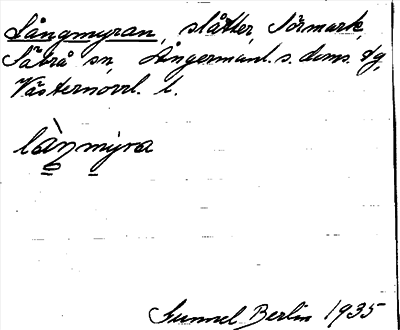 Långmyran, slåtter, Törmark,
Sätrå sn, Ångermanl. s. doms. dg,
Västernorrl. l.
làŋmyra
Gunnel Berlin 1935